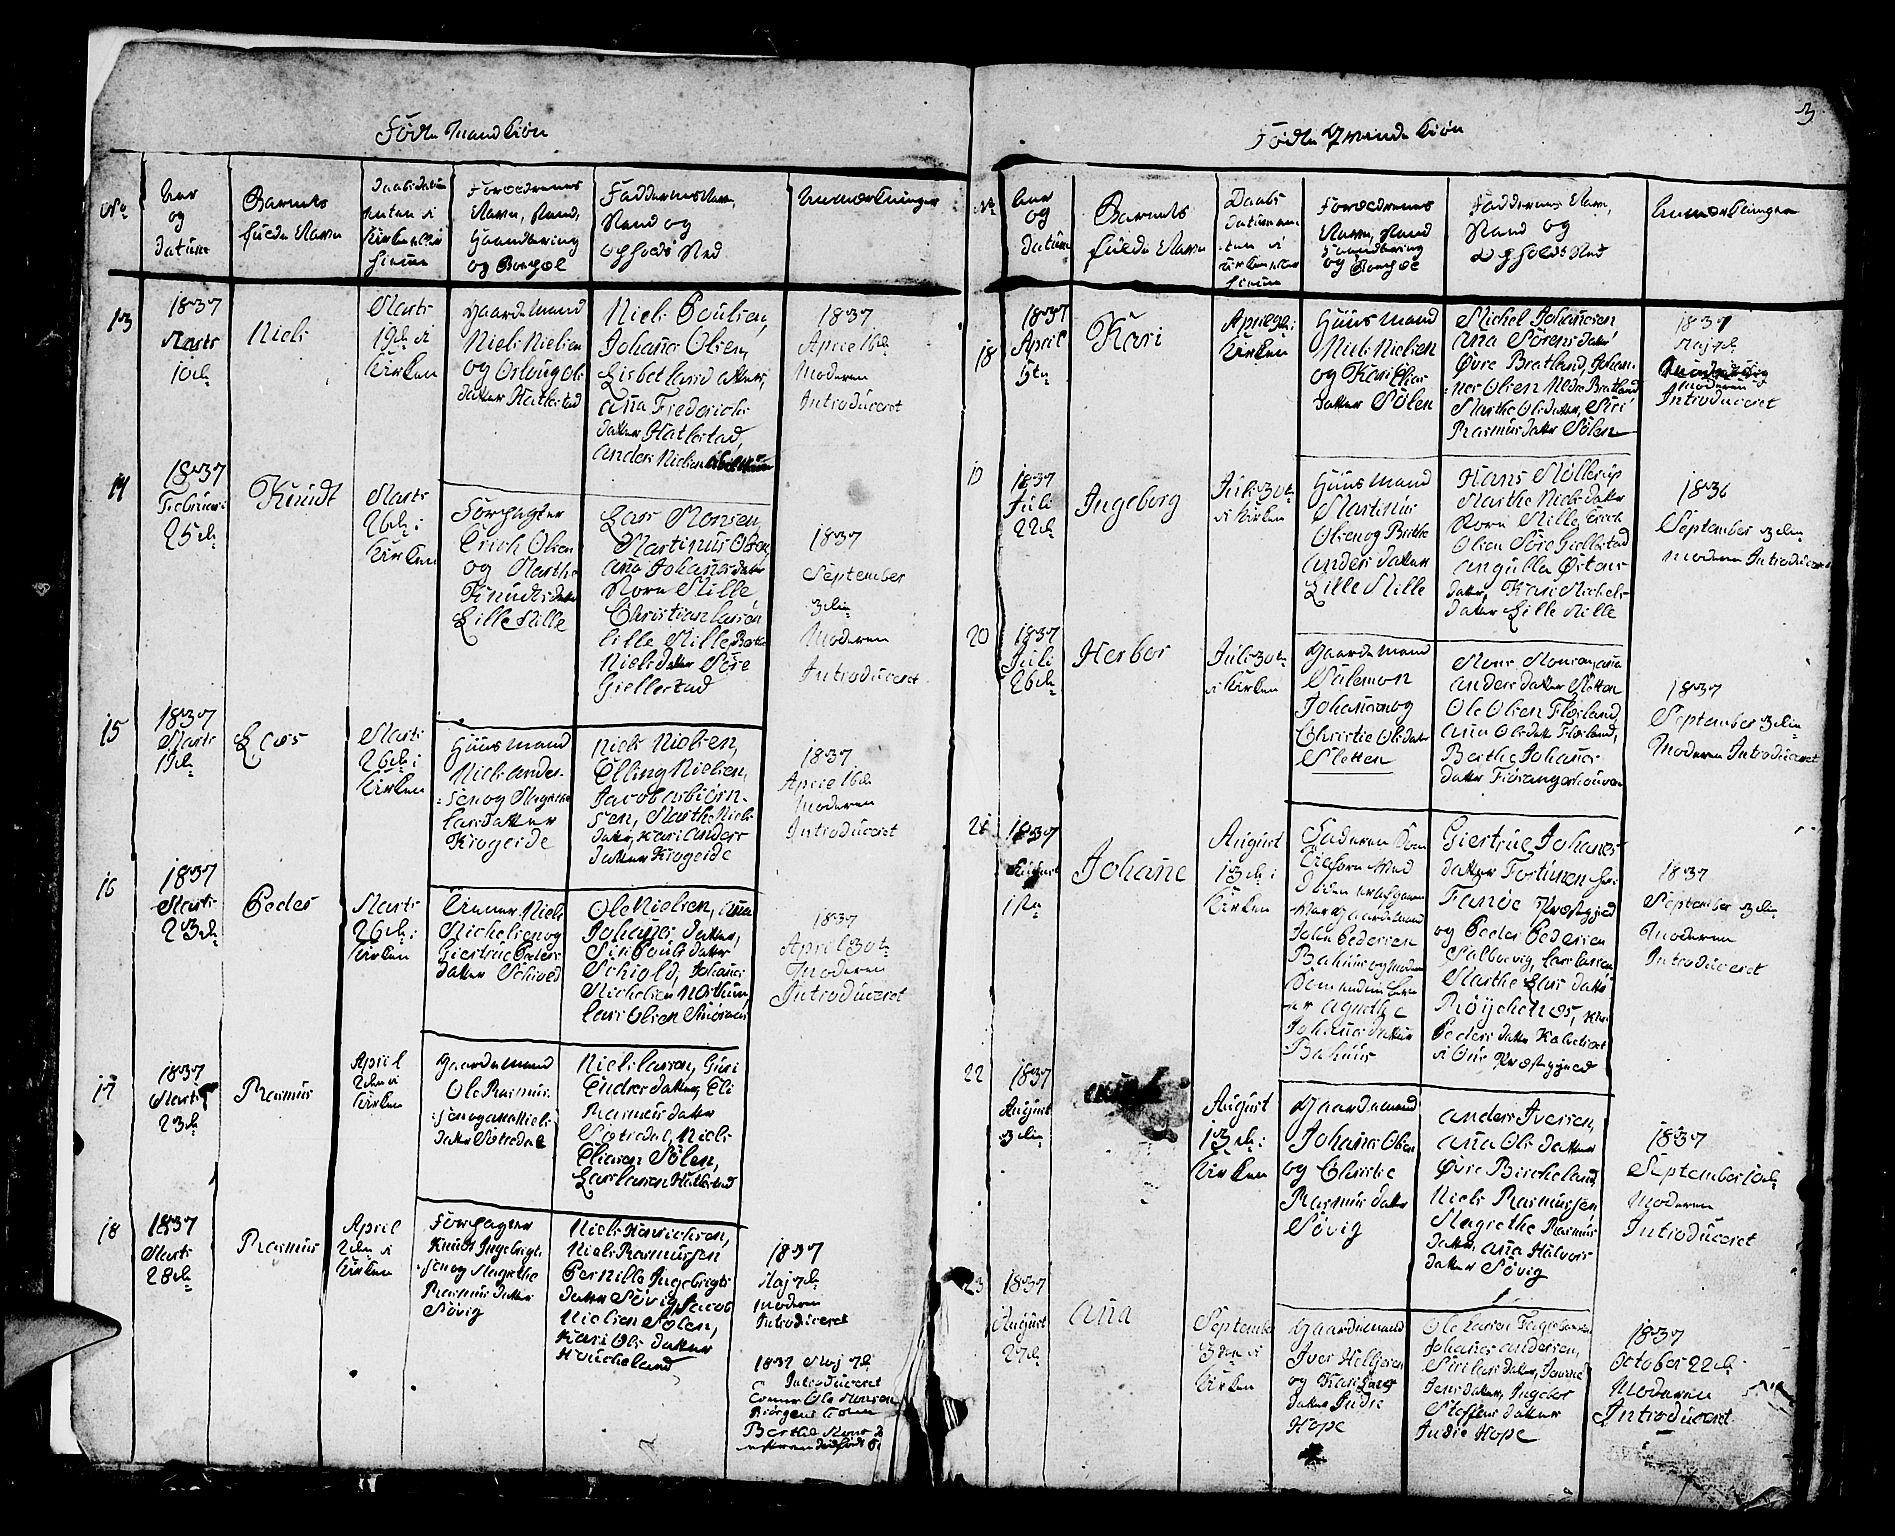 Födte Mandkiön
No
Aar
og
datum
Barnets
fulde Navn
Daabs datum
enten i
Kirken eller
hiemme
Forældrenes
Navn, Stand,
Haandtering
og Bopæl
Faddernes Navn,
Stand og
opholds Sted
Anmærkninger
13
1837
Marts
10de
Niels
Marts
19de i
Kirken
Gaardemand
Niels Nielsen
og Ols
datter Hatlestad
Niels Poulsen,
Johanes Olsen,
Lisbet
Ana Frederichs
datter Hatlestad,
Anders Nielsen
1837
April 16de
Moderen
Introduceret
14
1837
Februari
25de
Knudt
Marts
26de i
Kirken
Forpagter
Erich Olsen
og Marthe
Knudtsdatter
Lille Milde
Lars Monsen,
Martinus Olsen,
Ana Johanesdatter
Store Milde
Christian Larsön
Lille Milde,
Nielsdatter Söre
Giellestad
1837
September
3die
Moderen
Introduceret
15
1837
Marts
19de
Lars
Marts
26de i
Kirken
Huusmand
Niels Ander-
sen og Magrethe
Larsdatter
Krogeide
Niels Nielsen,
Elling Nielsen,
Jacob Asbiörn-
sen, Marthe Niels
datter, Kari Anders
datter Krogeide
1837
April 16de
Moderen
Introduceret
16
1837
Marts
23de
Peder
Marts
26de i
Kirken
Niels
Michelsen og
Giertrue Peders
datter Schiold
Ole Nielsen, Ana
Johanes datter,
Siri Pouls datter
Schiold, Johanes
Michelsen
Lars Olsen
1837
April 30te
Moderen
Introduceret
17
1837
Marts
23de
Rasmus
April
2den i
Kirken
Gaardemand
Ole Rasmus-
sen og Ana Niels
datter Sötredal
Niels Larsen, Guri
Endres datter, Eli
Rasmus datter
Sötredal, Niels
Eliasen Sölen,
Lars Larsen Hatlestad
18
1837
Marts
28de
Rasmus
April
2den i
Kirken
Forpagter
Knud Ingebrigt-
sen og Magrethe
Rasmus datter
Sövig
Niels Henrichsen,
Niels Rasmussen
Pernille Ingebrigts
datter Sövig, Jacob
Nielsen Sölen,
Kari Ols datter
Houcheland
1837
Maj 7de
Moderen
Introduceret
1837 Maj 7de
Introduceret
Ole Monsen
3
Födte Qvindekiön
No
Aar
og
datum
Barnets
fulde Navn
Daabs
datum en-
ten i
Kirken eller
hiemme
Forældrenes
Navn, Stand
Haandtering
og Bopæl
Faddernes Navn,
Stand og
opholds Sted
Anmærkninger
18
1837
April
5te
Kari
April
Kirken
Huusmand
Niels Nielsen
og Kari Elias
datter Sölen
Michel Johanesen
Ana Sörens datter
Övre Bratland, Johan-
nes Olsen Nedre Bratland
Marthe Olsdatter, Siri
Rasmus datter Sölen
1837
Maj 7de
Moderen
Introduceret
19
1837
Juli
22de
Ingeborg
Juli 30te
i Kirken
Huusmand
Martinus
Olsen og Brithe
Anders datter
Lille Milde
Hans Möllerup
Marthe Nielsdatter
Store Milde, Erich
Olsen Söre Giellestad
datter, Kari Michels-
datter Lille Milde
1836
September 3die
Moderen Introduceret
20
1837
Juli
26de
Herbor
Juli 30te
i Kirken
Gaardemand
Salemon
Johanesen og
Christie Olsdatter
Sletten
Mons Monsen, Ana
Anders datter Sletten
Ole Olsen Flesland,
Ana Olsdatter Flesland,
Barthe Johanes
datter
1837
September 3die
Moderen Introduceret
21
1837
August
1ste
Johane
August
13de i
Kirken
Faderen
Gaardemand
John Pedersen
Bahuus og Moderen
Agnethe
Johanes datter
Bahuus
Giertrue Johanes
datter
Fanöe Præstegield
og Peder Pedersen
Salbuevig, Lars Larsen,
Marthe Lars datter
Peders datter
i Ous Præstegield
1837
September 3die
Moderen
Introduceret
22
1837
August
3die
August
13de i
Kirken
Gaardemand
Johanes Olsen
og Christie
Rasmus datter
Sövig
Anders Iversen,
Ana Ols datter
Övre Bircheland
Niels Rasmussen
Magrethe Rasmus
datter, Ana Halvors
datter Sövig
1837
September 10de
Moderen
Introduceret
23
1837
August
27de
Ana
September
3die i
Kirken
Gaardemand
Iver
og Kari Lars
datter Indre
Hope
Ole Larsen
Johanes Andersen,
Siri Larsdatter,
Jensdatter, Ingebor
Steffens datter
Indre Hope
1837
October 22de
Moderen
Introduceret